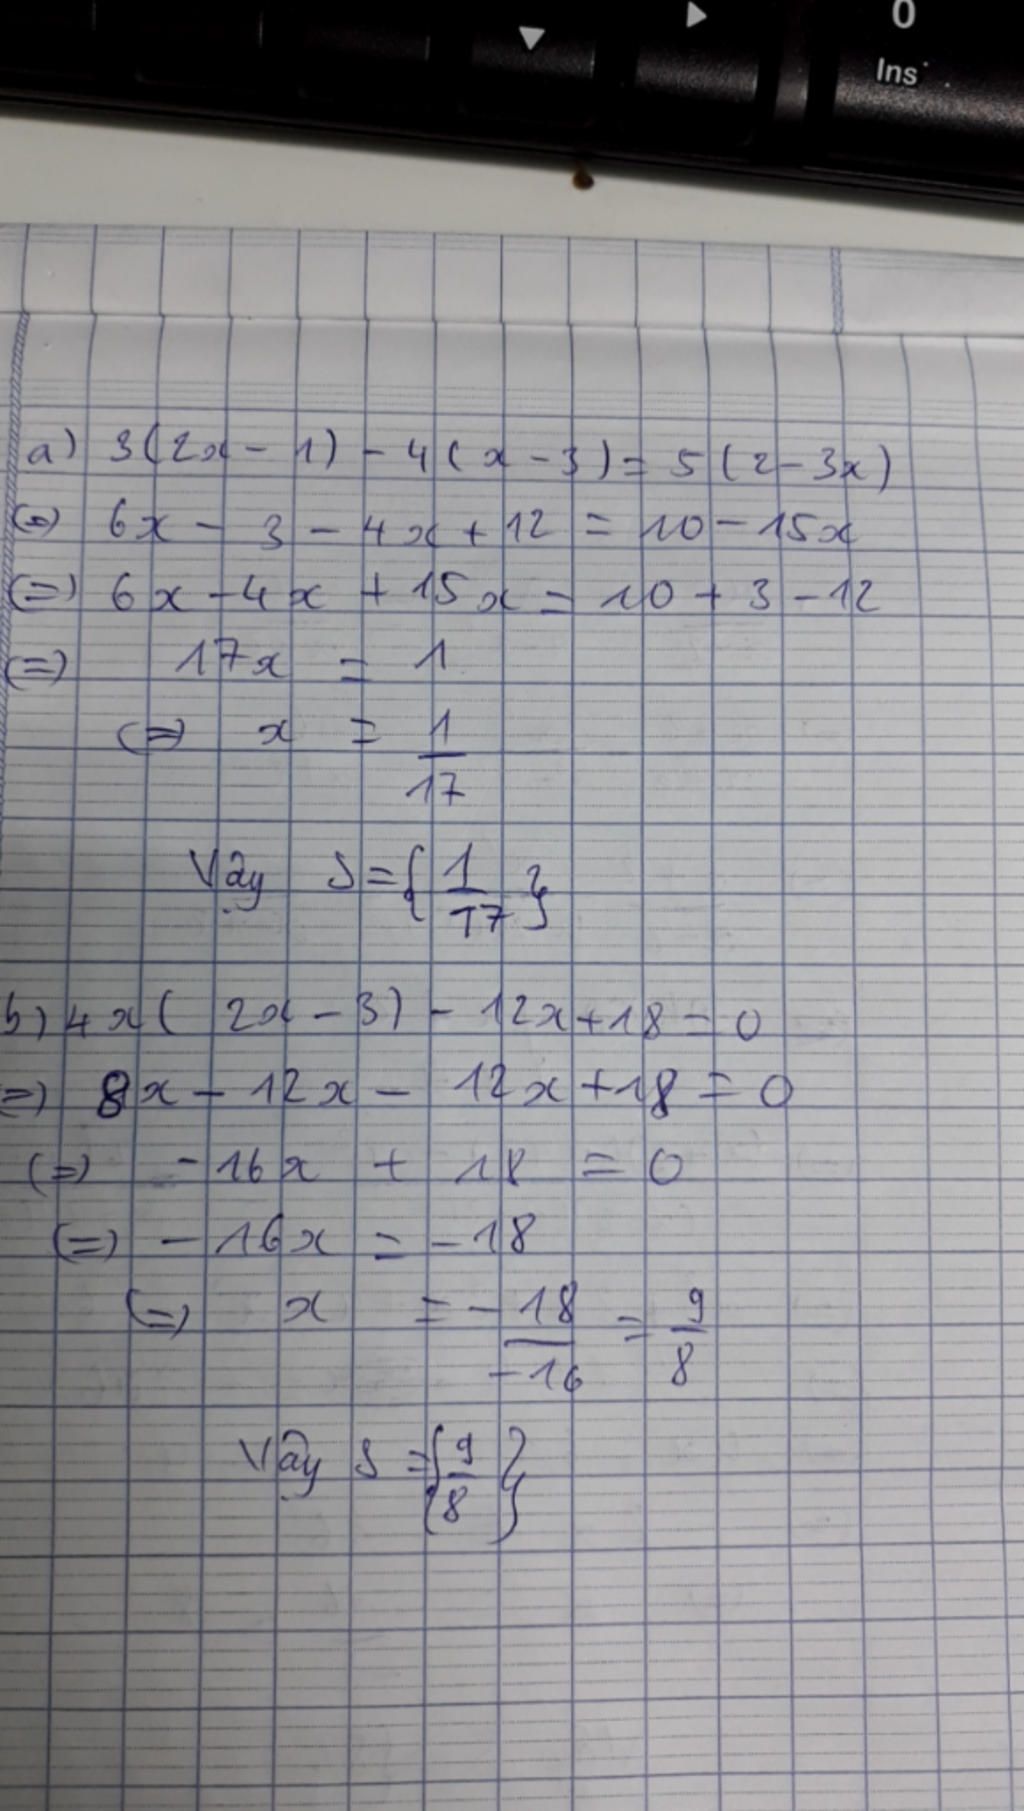 0
Ins
a) 3(2x - 1) - 4(x - 3) = 5(2 - 3x)
(=) 6x - 3 - 4x + 12 = 10 - 15x
(=) 6x - 4x + 15x = 10 + 3 - 12
(=) 17x = 1
(=) x = 1/17
Vậy S = {1/17}
b) 4x(2x - 3) - 12x + 18 = 0
=) 8x - 12x - 12x + 18 = 0
(=) -16x + 18 = 0
(=) -16x = -18
(=) x = -18/-16 = 9/8
Vậy S = {9/8}